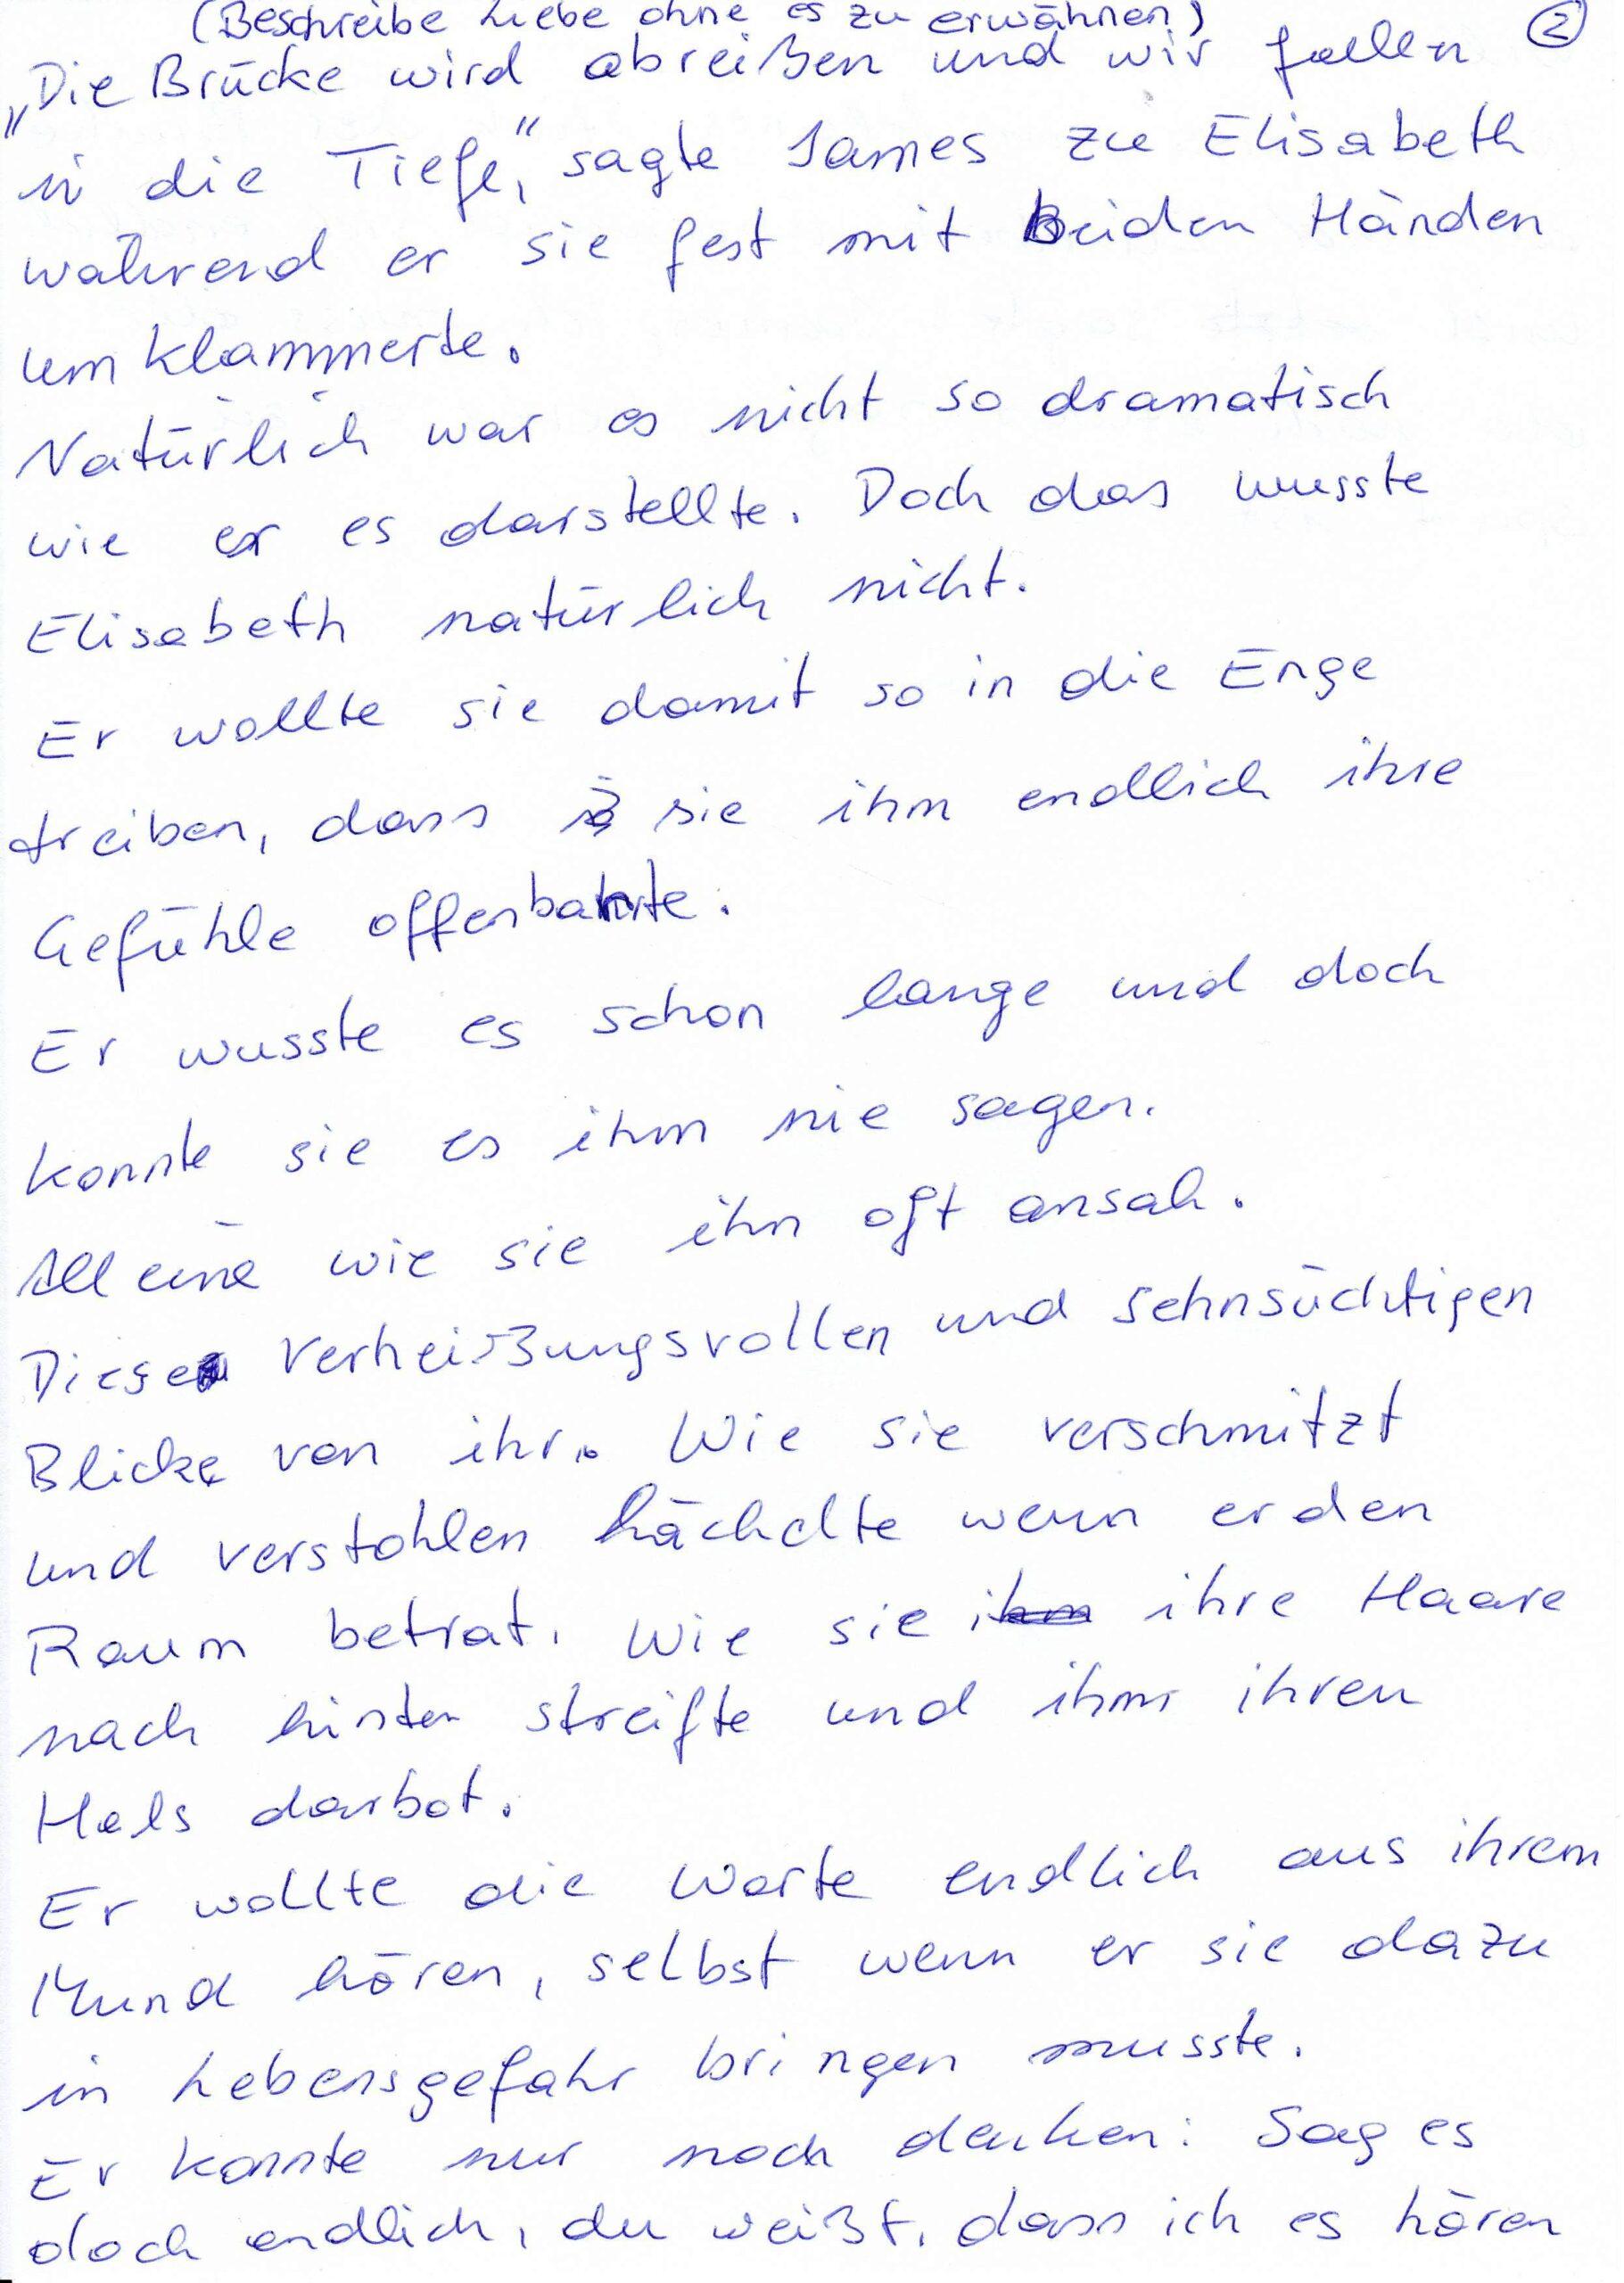 (Beschreibe Liebe ohne es zu erwähnen) ②
„Die Brücke wird abreißen und wir fallen
in die Tiefe," sagte James zu Elisabeth
während er sie fest mit beiden Händen
umklammerte.
Natürlich war es nicht so dramatisch
wie er es darstellte. Doch das wusste
Elisabeth natürlich nicht.
Er wollte sie damit so in die Enge
treiben, dass sie ihm endlich ihre
Gefühle offenbarte.
Er wusste es schon lange und doch
konnte sie es ihm nie sagen.
Alleine wie sie ihn oft ansah.
Diese verheißungsvollen und sehnsüchtigen
Blicke von ihr. Wie sie verschmitzt
und verstohlen lächelte wenn er den
Raum betrat. Wie sie ihm ihre Haare
nach hinten streifte und ihm ihren
Hals darbot.
Er wollte die Worte endlich aus ihrem
Mund hören, selbst wenn er sie dazu
in Lebensgefahr bringen musste.
Er konnte nur noch denken: Sag es
doch endlich, du weißt, dass ich es hören